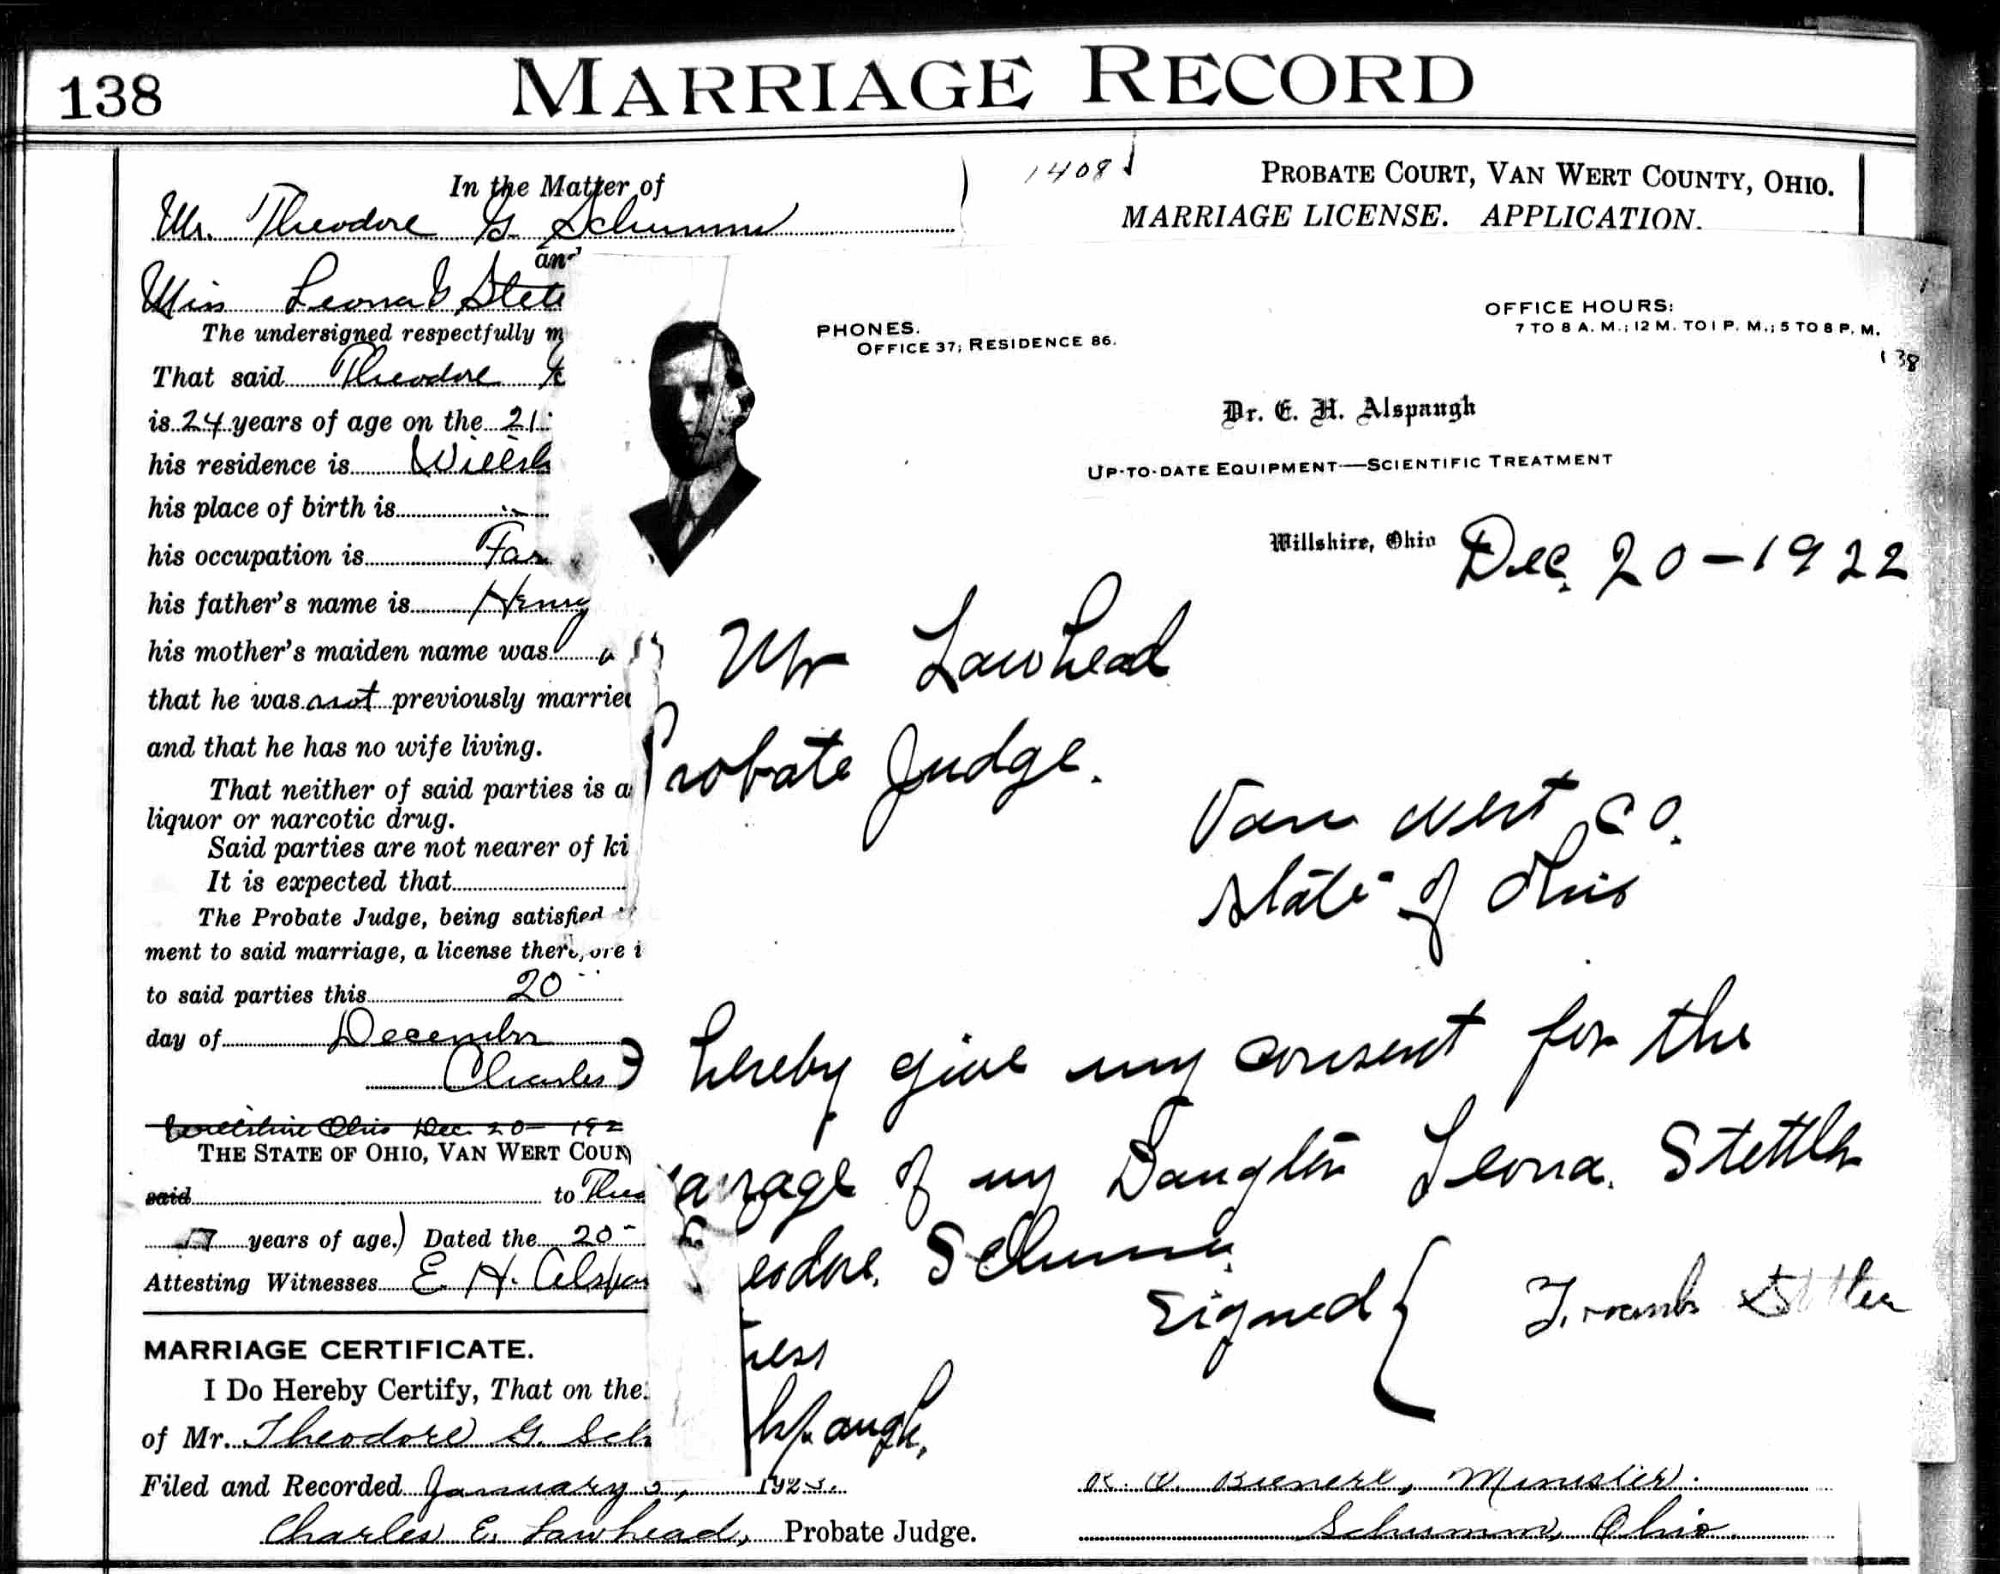 138
MARRIAGE RECORD
In the Matter of
Mr. Theodore G. Schumm
and
Miss Leona
The undersigned respectfully m
That said Theodore
is 24 years of age on the 21
his residence is Willsh
his place of birth is "
his occupation is Far
his father's name is Henry
his mother's maiden name was
that he was not previously married
and that he has no wife living.
That neither of said parties is a
liquor or narcotic drug.
Said parties are not nearer of ki
It is expected that
The Probate Judge, being satisfied
ment to said marriage, a license therefore i
to said parties this 20
day of December
Charles
Willshire Ohio Dec. 20- 192
THE STATE OF OHIO, VAN WERT COUN
said to Theo
17 years of age.) Dated the 20
Attesting Witnesses E. H. Alspa
MARRIAGE CERTIFICATE.
I Do Hereby Certify, That on the
of Mr. Theodore G. Sch
Filed and Recorded January 192
Charles E. Lawhead, Probate Judge.
1408
PROBATE COURT, VAN WERT COUNTY, OHIO.
MARRIAGE LICENSE. APPLICATION.
PHONES.
OFFICE 37; RESIDENCE 86.
OFFICE HOURS:
7 TO 8 A. M.; 12 M. TO 1 P. M.; 5 TO 8 P. M.
138
Dr. E. H. Alspaugh
UP-TO-DATE EQUIPMENT—SCIENTIFIC TREATMENT
Willshire, Ohio Dec. 20-1922
Mr Lawhead
Probate Judge.
Van Wert Co.
State of Ohio
I hereby give my consent for the
marage of my Daughter Leona. Stettler
Theodore. Schumm.
Signed { Frank Stettler
ness
lspaugh,
Minister.
Schumm, Ohio.